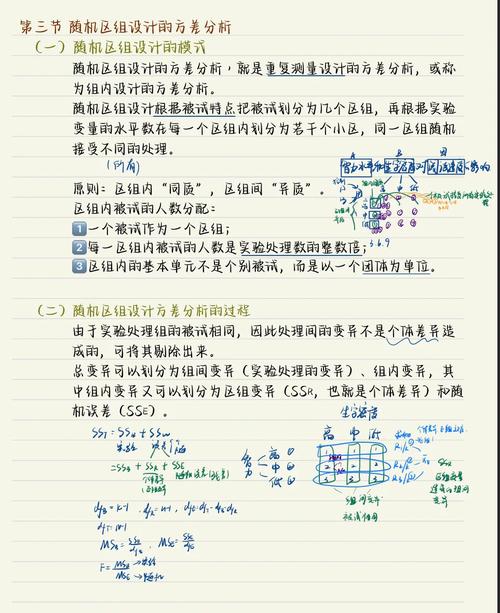 第三节 随机区组设计的方差分析
(一) 随机区组设计的模式
随机区组设计的方差分析，就是重复测量设计的方差分析，或称
为组内设计的方差分析。
随机区组设计根据被试特点把被试划分为几个区组，再根据实验
变量的水平数在每一个区组内划分为若干个小区，同一区组随机
接受不同的处理。
(所有)
A B 因
智力水平 生字密度 阅读 影响
原则：区组内“同质”，区组间“异质”。
区组内被试的人数分配：
1 一个被试作为一个区组；
2 每一区组内被试的人数是实验处理数的整数倍； 3.6.9
3 区组内的基本单元不是个别被试，而是以一个团体为单位。
(二) 随机区组设计方差分析的过程
由于实验处理组的被试相同，因此处理间的变异不是个体差异造
成的，可将其剔除出来。
总变异可以划分为组间变异（实验处理的变异）、组内变异，其
中组内变异又可以划分为区组变异（SSR，也就是个体差异）和随
机误差（SSE）。
生字密度
SST = SSB + SSW
高 中 低
= SSB + SSR + SSE
智力 高 中 低
组间变异
被试相同
区组变异
dfB = k-1
MSB = SSB/dfB , MSE = SSE/dfE
F = MSB/MSE